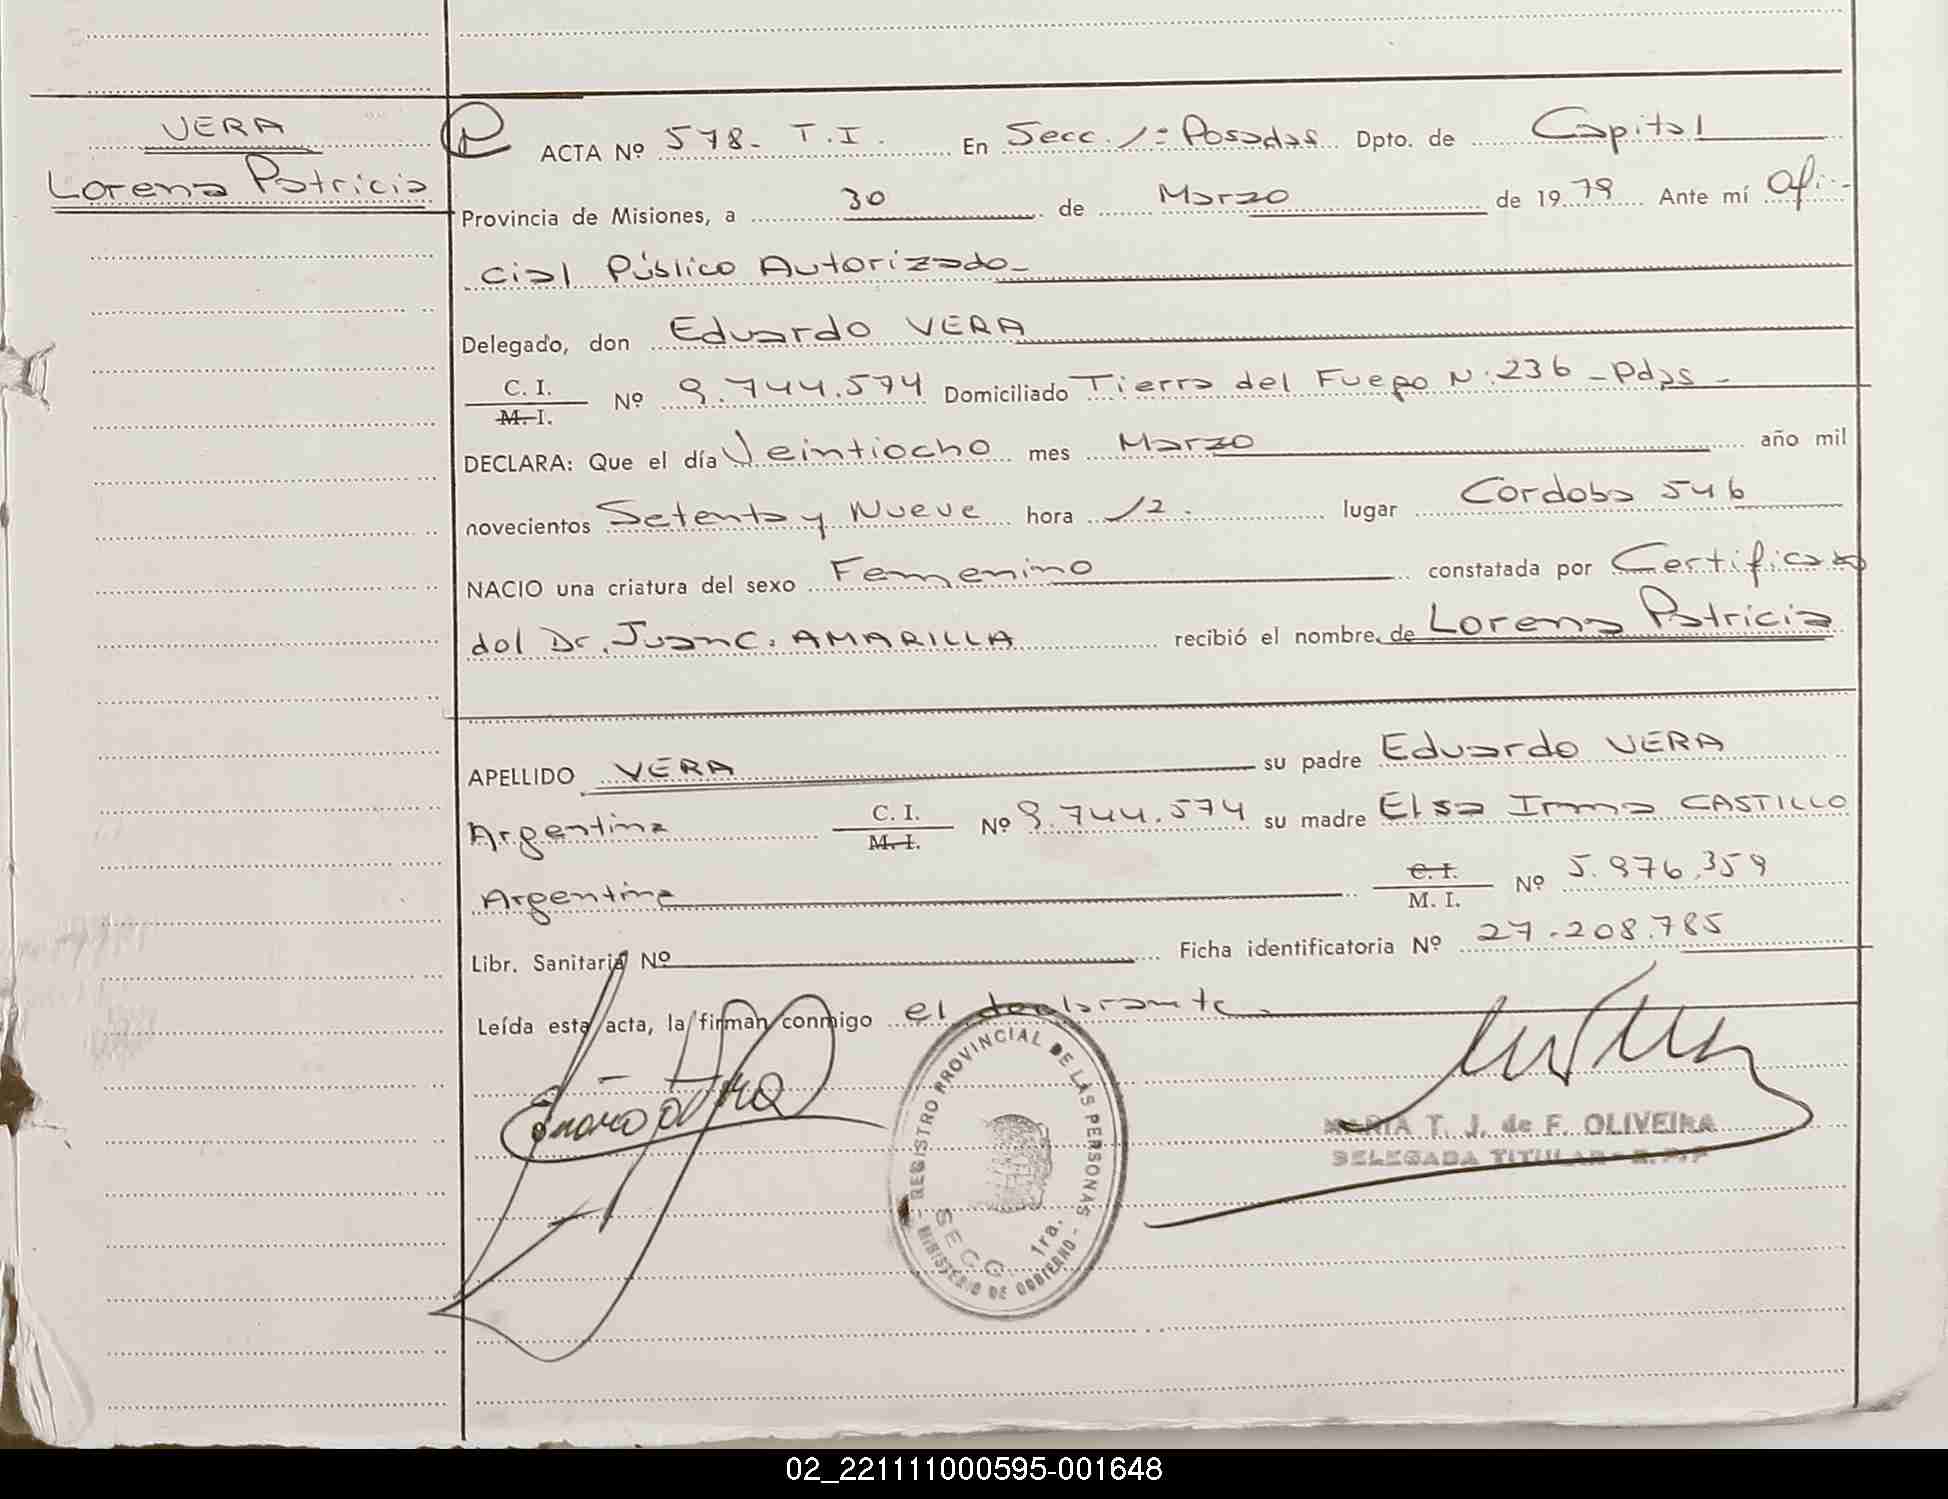 VERA
Lorena Patricia
ACTA Nº 578- T.I. En Secc. 1ª Posadas Dpto. de Capital
Provincia de Misiones, a 30 de Marzo de 1979 Ante mí Ofi-
cial Público Autorizado-
Delegado, don Eduardo VERA
C. I.
M. I. Nº 9.744.574 Domiciliado Tierra del Fuego N: 236 - Pdas -
DECLARA: Que el día Veintiocho mes Marzo año mil
novecientos Setenta y Nueve hora 12. lugar Cordoba 546
NACIO una criatura del sexo Femenino constatada por Certifica
dol Dr. Juan C. AMARILLA recibió el nombre de Lorena Patricia
APELLIDO VERA su padre Eduardo VERA
Argentina C. I.
M. I. Nº 9.744.574 su madre Elsa Irma CASTILLO
Argentina C. I.
M. I. Nº 5.976.359
Libr. Sanitaria Nº Ficha identificatoria Nº 27.208.785
Leída esta acta, la firman conmigo el declarante
REGISTRO PROVINCIAL DE LAS PERSONAS
SECC. 1ra.
- MINISTERIO DE GOBIERNO -
MARIA T. J. de F. OLIVEIRA
DELEGADA TITULAR
02_221111000595-001648